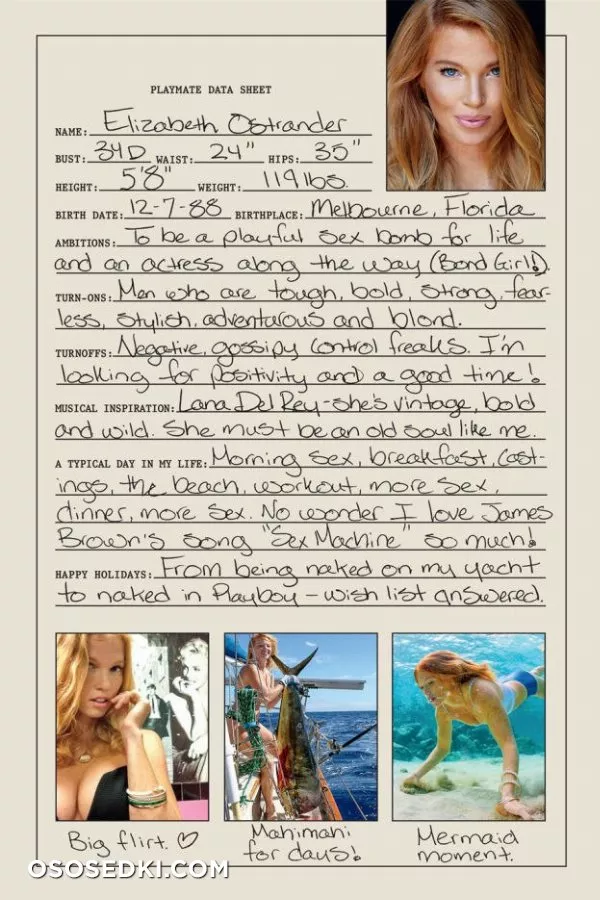 PLAYMATE DATA SHEET
NAME: Elizabeth Ostrander
BUST: 34D WAIST: 24" HIPS: 35"
HEIGHT: 5'8" WEIGHT: 119 lbs.
BIRTH DATE: 12-7-88 BIRTHPLACE: Melbourne, Florida
AMBITIONS: To be a playful sex bomb for life
and an actress along the way (Bond Girl!).
TURN-ONS: Men who are tough, bold, strong, fear-
less, stylish, adventurous and blond.
TURNOFFS: Negative, gossipy control freaks. I'm
looking for positivity and a good time!
MUSICAL INSPIRATION: Lana Del Rey-she's vintage, bold
and wild. She must be an old soul like me.
A TYPICAL DAY IN MY LIFE: Morning sex, breakfast, cast-
ings, the beach, workout, more sex,
dinner, more sex. No wonder I love James
Brown's song "Sex Machine" so much!
HAPPY HOLIDAYS: From being naked on my yacht
to naked in Playboy – wish list answered.
Big flirt. ♡
Mahimahi
for days!
Mermaid
moment.
OSOSEDKI.COM